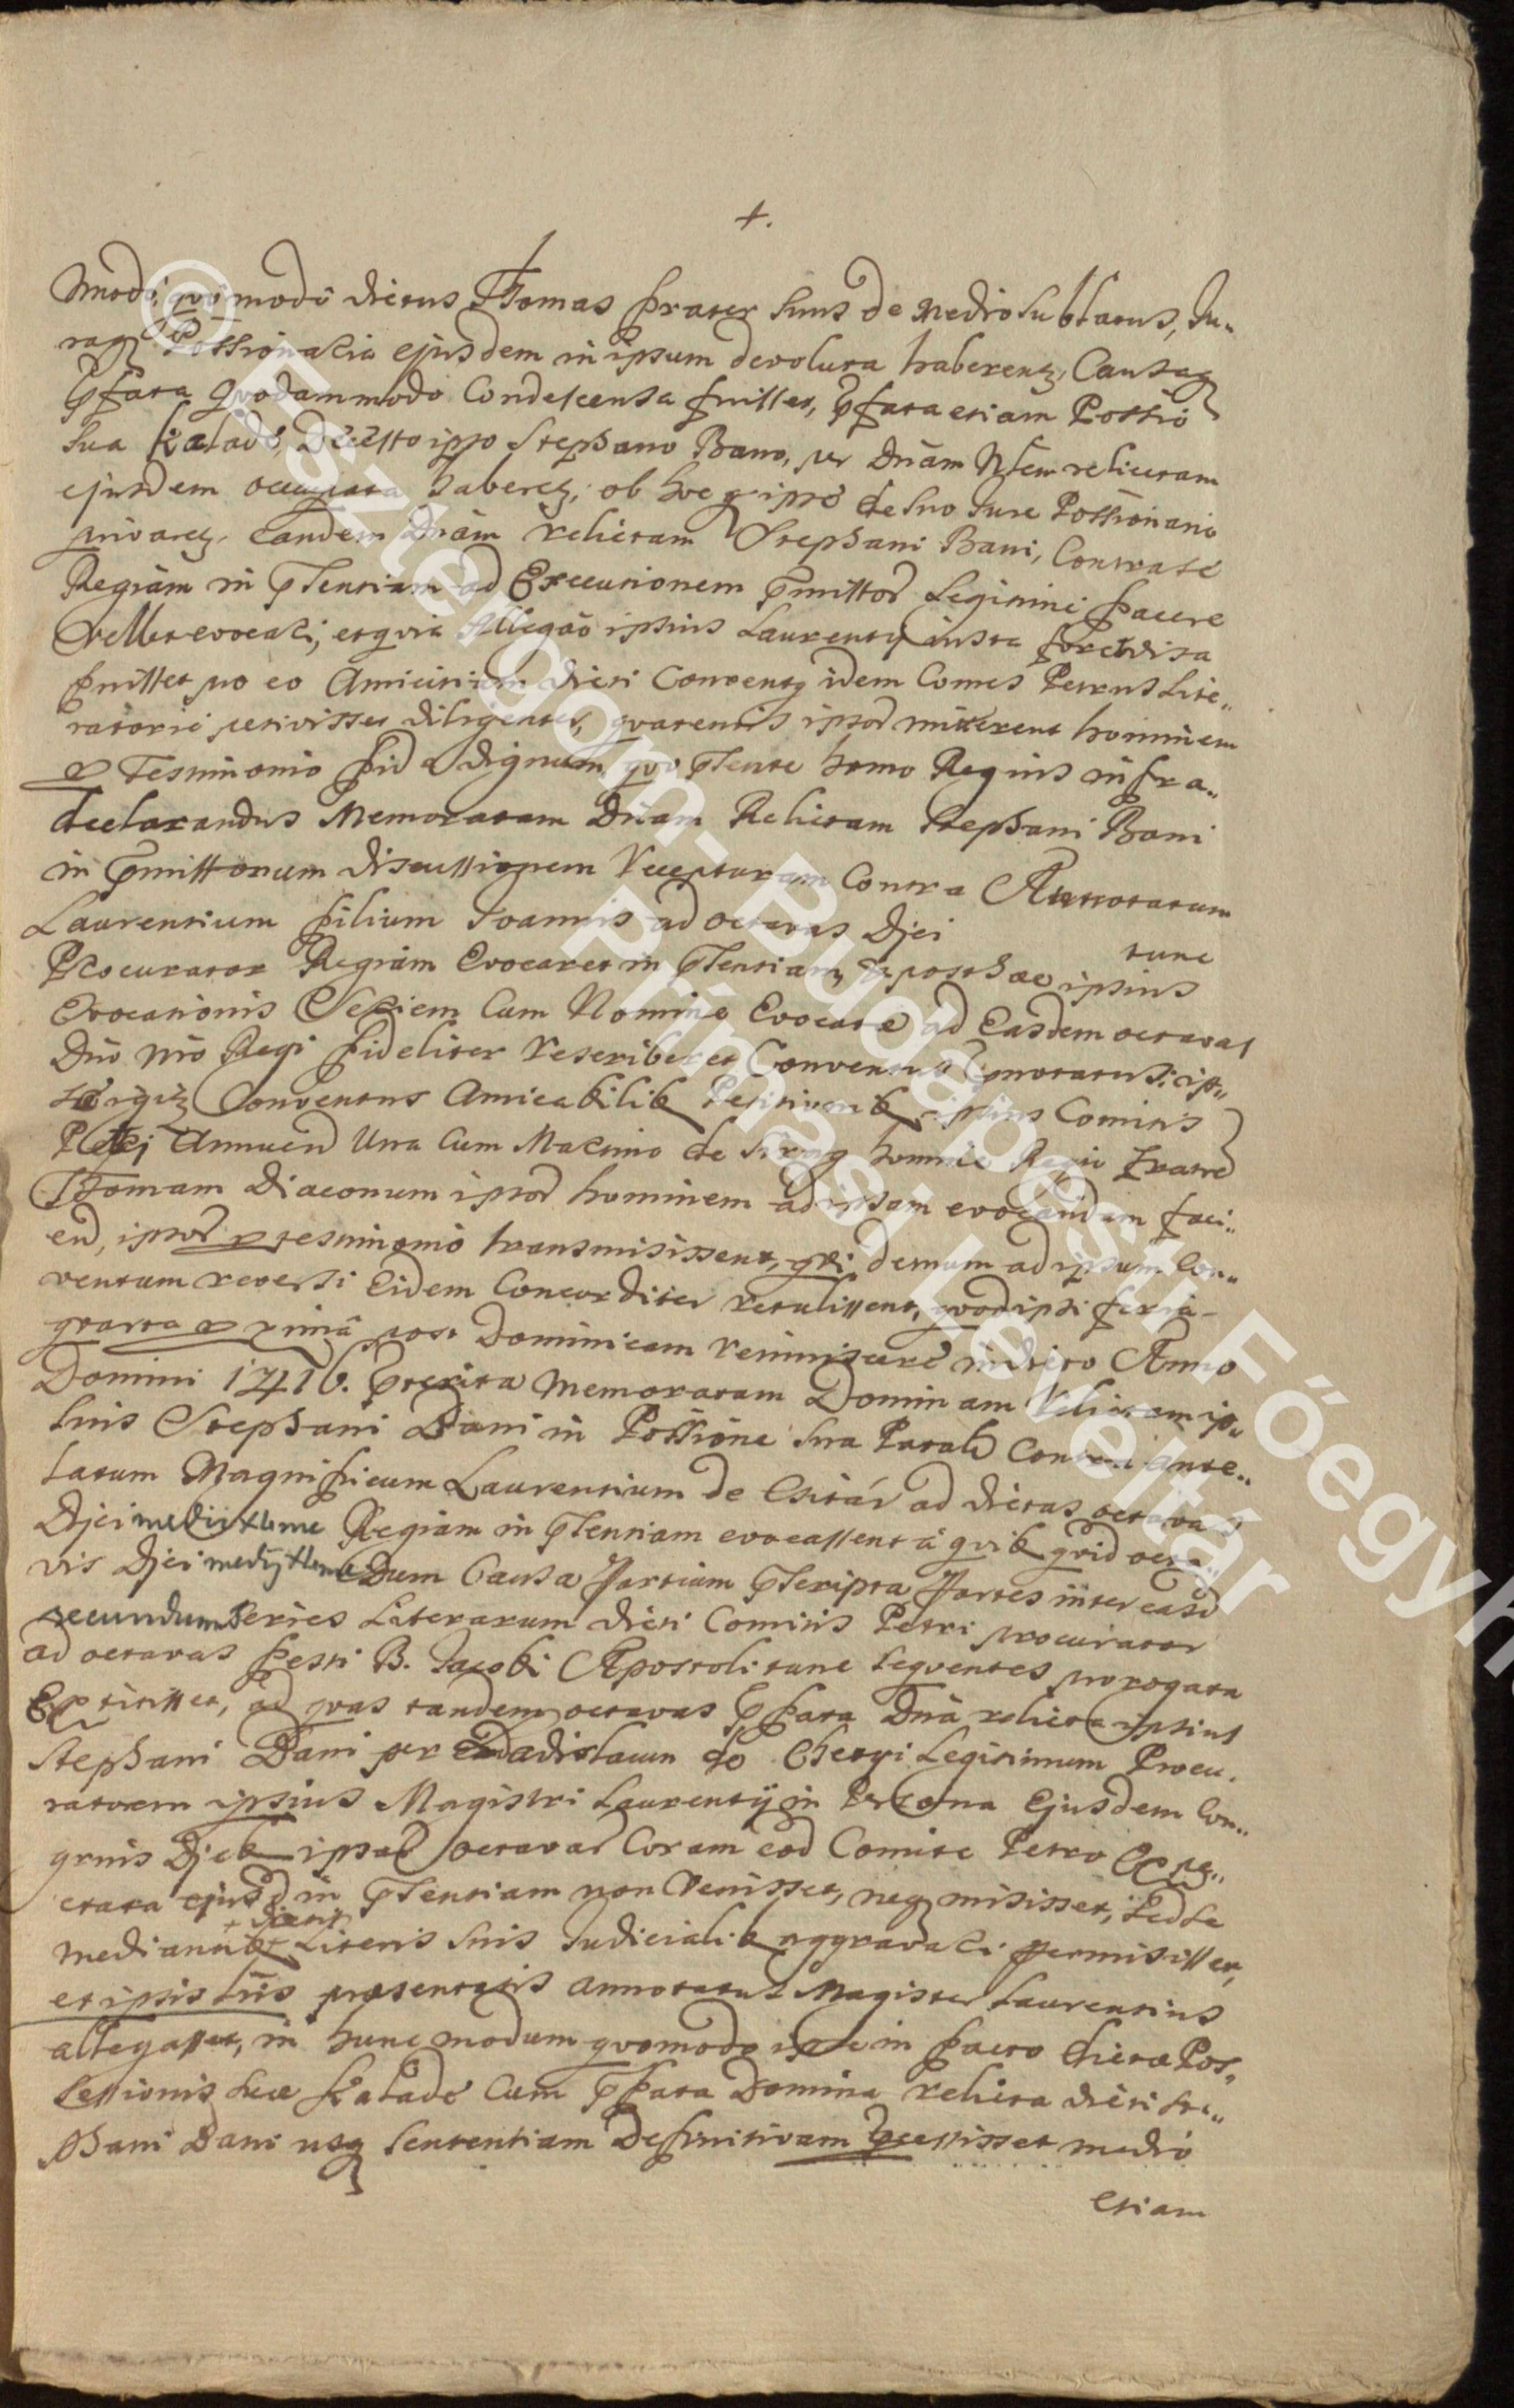 +.
modo, quomodo dictus Thomas frater suus de medio sublatus, Iu„
raq Possionaria ejusdem in ipsum devoluta haberentz, Causaq
pfata quodammodo Condescensa fuisset, pfata etiam Possio
sua Katadé, ipso Stephano Bano, per Dnam relictam
ejusdem occupata haberetz, ob hoc q ipse de suo Iure Possionario
privaretz. Eandem Dnam relictam Stephani Bani, Contra se
Regiam in pSentiam ad Executionem pmissor Legitime facere
vellet evocari, et quia Allegao ipsius Laurenty iusta fore visa
fuisset pro eo Amicitiam dicti Conventq idem Comes Petrus Lite„
ratorie petivisset diligenter, quatenus ipsor mitterent hominem
p Testimonio fide dignum, quo pSente homo Regius infra„
declarandus Memoratam Dnam Relictam Stephani Bani
in pmissorum discussionem Recepturam Contra Annotatum
Laurentium filium Ioannis ad octavas Djei
tunc
Procurator Regiam Evocaret in pSentiam, & post hae ipsius
Evocationis Seriem Cum Nomine Evocatae ad Easdem octavas
Dno nro Regi fideliter rescriberet Conventus pnotatus; ip„
se igitz Conventus Amicabilib Petitionib ipsius Comitis
Petri Annuend Una Cum de homine Regio Fratre
Thomam Diaconum ipsor hominem ad ipsam evocandam faci„
end, ipsor p testimonio transmisissent, qui demum ad ipsum Con„
ventum reversi Eidem Concorditer retulissent, quod ipsi feria
quarta pxima post Dominicam reminiscere in dicto Anno
Domini 1416. pterita memoratam Dominam Relictam ip„
sius Stephani Bani in Possione sua Patah Contra ante„
latum Magnificum Laurentium de Csitár ad dictas octavas
Djei medii xlme Regiam in pSentiam evocassent á quib quid octa„
vis Djei medij xlme Dum Causa Partium pScripta Partes inter easd
secundum Series Literarum dicti Comitis Petri procurator
ad octavas festi B. Iacobi Apostoli tunc seqventes prorogata
Extitisset, ad quas tandem octavas pfata Dna relicta ipsius
Stephani Bani per Ladislaum de Chetyi Legitimum Procu„
ratorem ipsius Magistri Laurentij in Persona Ejusdem Con„
gruis Djeb ipsar octavar Coram eod Comite Petro Expe„
ctata ejusd in pSentiam non Venisset, neq misisset, sed se
+ dictis
mediantib Literis suis Iudicialib aggravari permisisset,
et ipsis Lris praesentatis annotatus Magister Laurentius
allegasset, in hunc modum quomodo ipse in facto dictae Pos„
sessionis suae Katadé Cum pfata Domina relicta dicti Ste„
phani Bani usq Sententiam Definitivam pcessisset medio
etiam
© Esztergom-Budapesti Főegyh
Prímási Levéltár